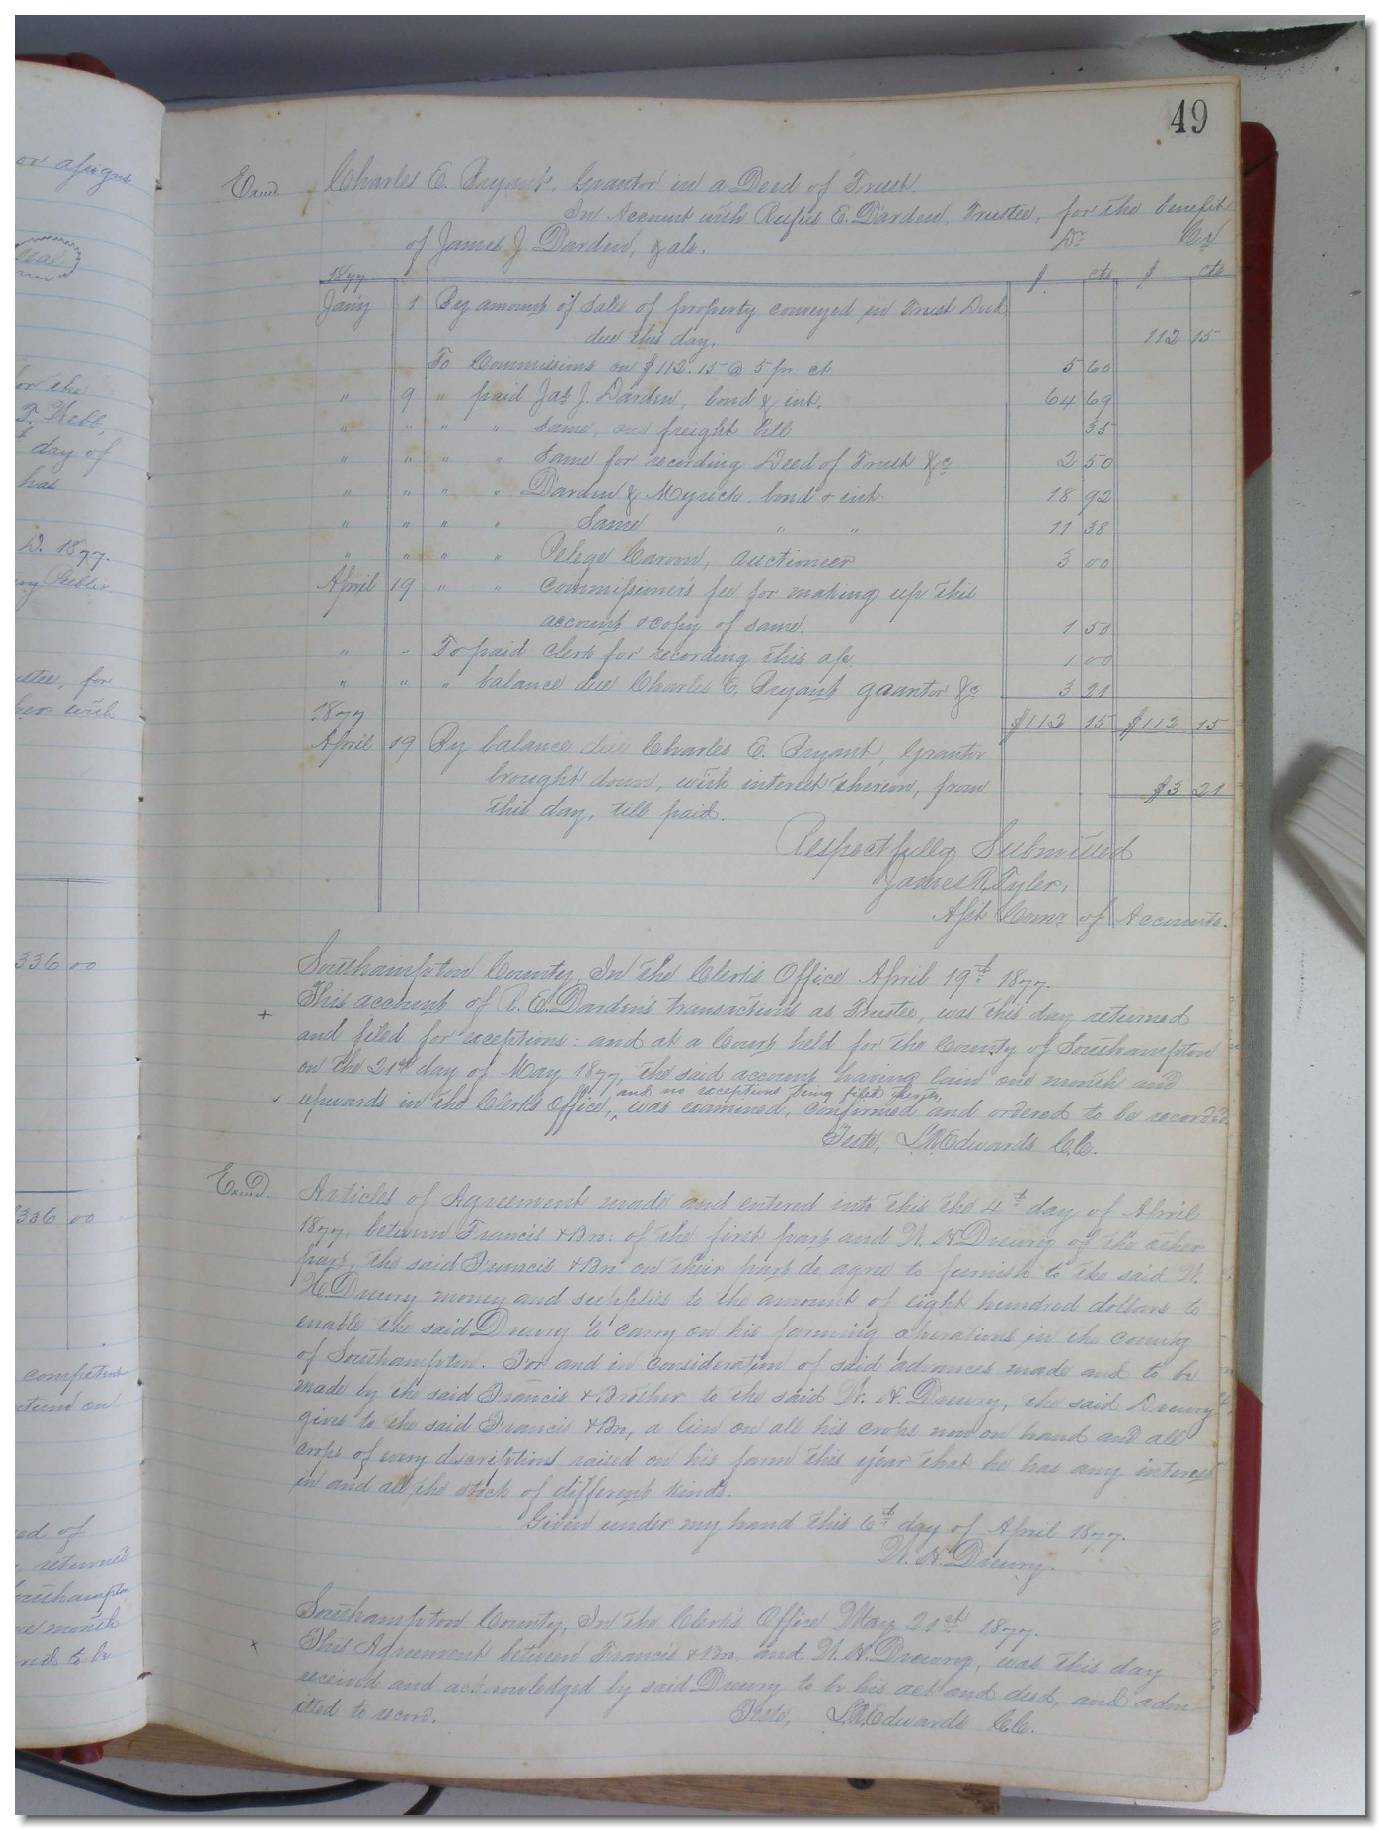 49
Exmd. Charles E. Bryant, Grantor in a Deed of Trust.
In Account with Rufus E. Darden, Trustee, for the benefit
of James J. Darden, & als. Dr. Cr
1877 $ cts $ cts
Jan'y 1 By amount of sales of property conveyed in Trust Deed
due this day. 112 15
To Commissions on $112.15 @ 5 pr. ct. 5 60
" 9 " paid Jas. J. Darden, bond & int. 64 69
" " " " Same, freight bill 35
" " " " Same for recording Deed of Trust &c 2 50
" " " " Darden & Myrick bond & int. 18 92
" " " " Same " " 11 38
" " " " auctioneer 3 00
April 19 " " Commissioner's fee for making up this
account & copy of same. 1 50
" " To paid Clerk for recording this a/c 1 00
" " " balance due Charles E. Bryant grantor &c 3 21
1877 $112 15 $112 15
April 19 By balance due Charles E. Bryant, Grantor
brought down, with interest thereon, from $3 21
this day, till paid.
Respectfully Submitted
James R. Tyler,
Asst Comr. of Accounts.
Southampton County, In the Clerk's Office April 19th 1877.
This account of R. E. Darden's transactions as Trustee, was this day returned
and filed for exceptions: and at a Court held for the County of Southampton
on the 21st day of May 1877, the said account having lain one month and
and no exceptions being filed thereto,
upwards in the Clerk's Office, ^ was examined, confirmed and ordered to be recorded.
Teste, L.R. Edwards C.C.
Exmd. Articles of Agreement made and entered into this the 4th day of April
1877, between Francis & Bro. of the first part and W. H. Drewry of the other
part, the said Francis & Bro on their part do agree to furnish to the said W.
H. Drewry money and supplies to the amount of eight hundred dollars to
enable the said Drewry to carry on his farming operations in the county
of Southampton. For and in consideration of said advances made and to be
made by the said Francis & Brother to the said W. H. Drewry, the said Drewry
gives to the said Francis & Bro, a lien on all his crops now on hand and all
crops of every description raised on his farm this year that he has any interest
in and all the stock of different kinds.
Given under my hand this 6th day of April 1877.
W. H. Drewry.
Southampton County, In the Clerk's Office May 21st 1877.
This Agreement between Francis & Bro, and W. H. Drewry, was this day
received and acknowledged by said Drewry to be his act and deed, and adm
itted to record. Teste, L.R. Edwards C.C.